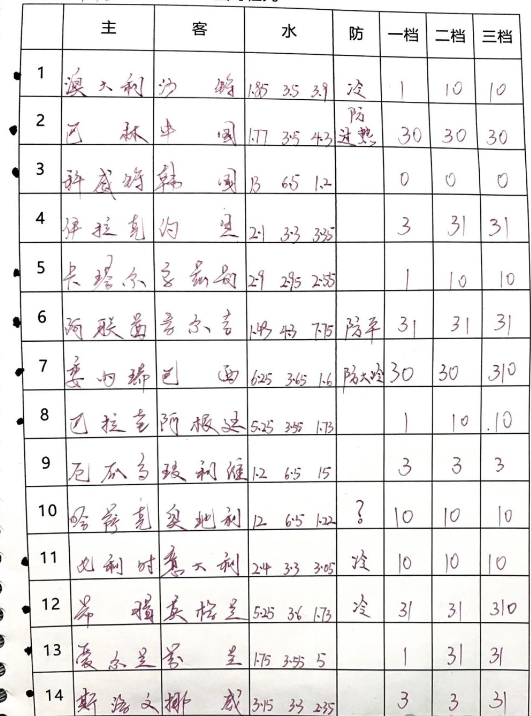 主 客 水 防 一档 二档 三档
1 澳大利 沙 特 1.85 3.5 3.9 冷 1 10 10
2 巴 林 中 国 1.77 3.5 4.3 防过热 30 30 30
3 科威特 韩 国 13 6.5 1.2 0 0 0
4 伊拉克 约 旦 2.1 3.3 3.35 3 31 31
5 卡塔尔 2.9 2.95 2.55 1 10 10
6 阿联酋 吉尔吉 1.43 4.3 7.75 防平 31 31 31
7 委内瑞 巴 西 6.25 3.65 1.6 防大冷 30 30 310
8 巴拉圭 阿根廷 5.25 3.55 1.73 1 10 10
9 厄瓜多 玻利维 1.2 6.5 15 3 3 3
10 哈萨克 奥地利 12 6.5 1.22 ? 10 10 10
11 比利时 意大利 2.4 3.3 3.05 冷 10 10 10
12 希 腊 英格兰 5.25 3.6 1.73 冷 31 31 310
13 爱尔兰 芬 兰 1.75 3.55 5 1 31 31
14 斯洛文 挪 威 3.15 3.3 2.35 3 3 31